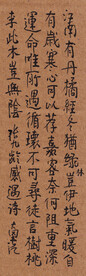 江南有丹橘經冬猶綠林豈伊地氣暖自
有歲寒心可以荐嘉客奈何阻重深
運命唯所遇循環不可尋徒言樹桃
李此木豈無陰 張九齡感遇詩